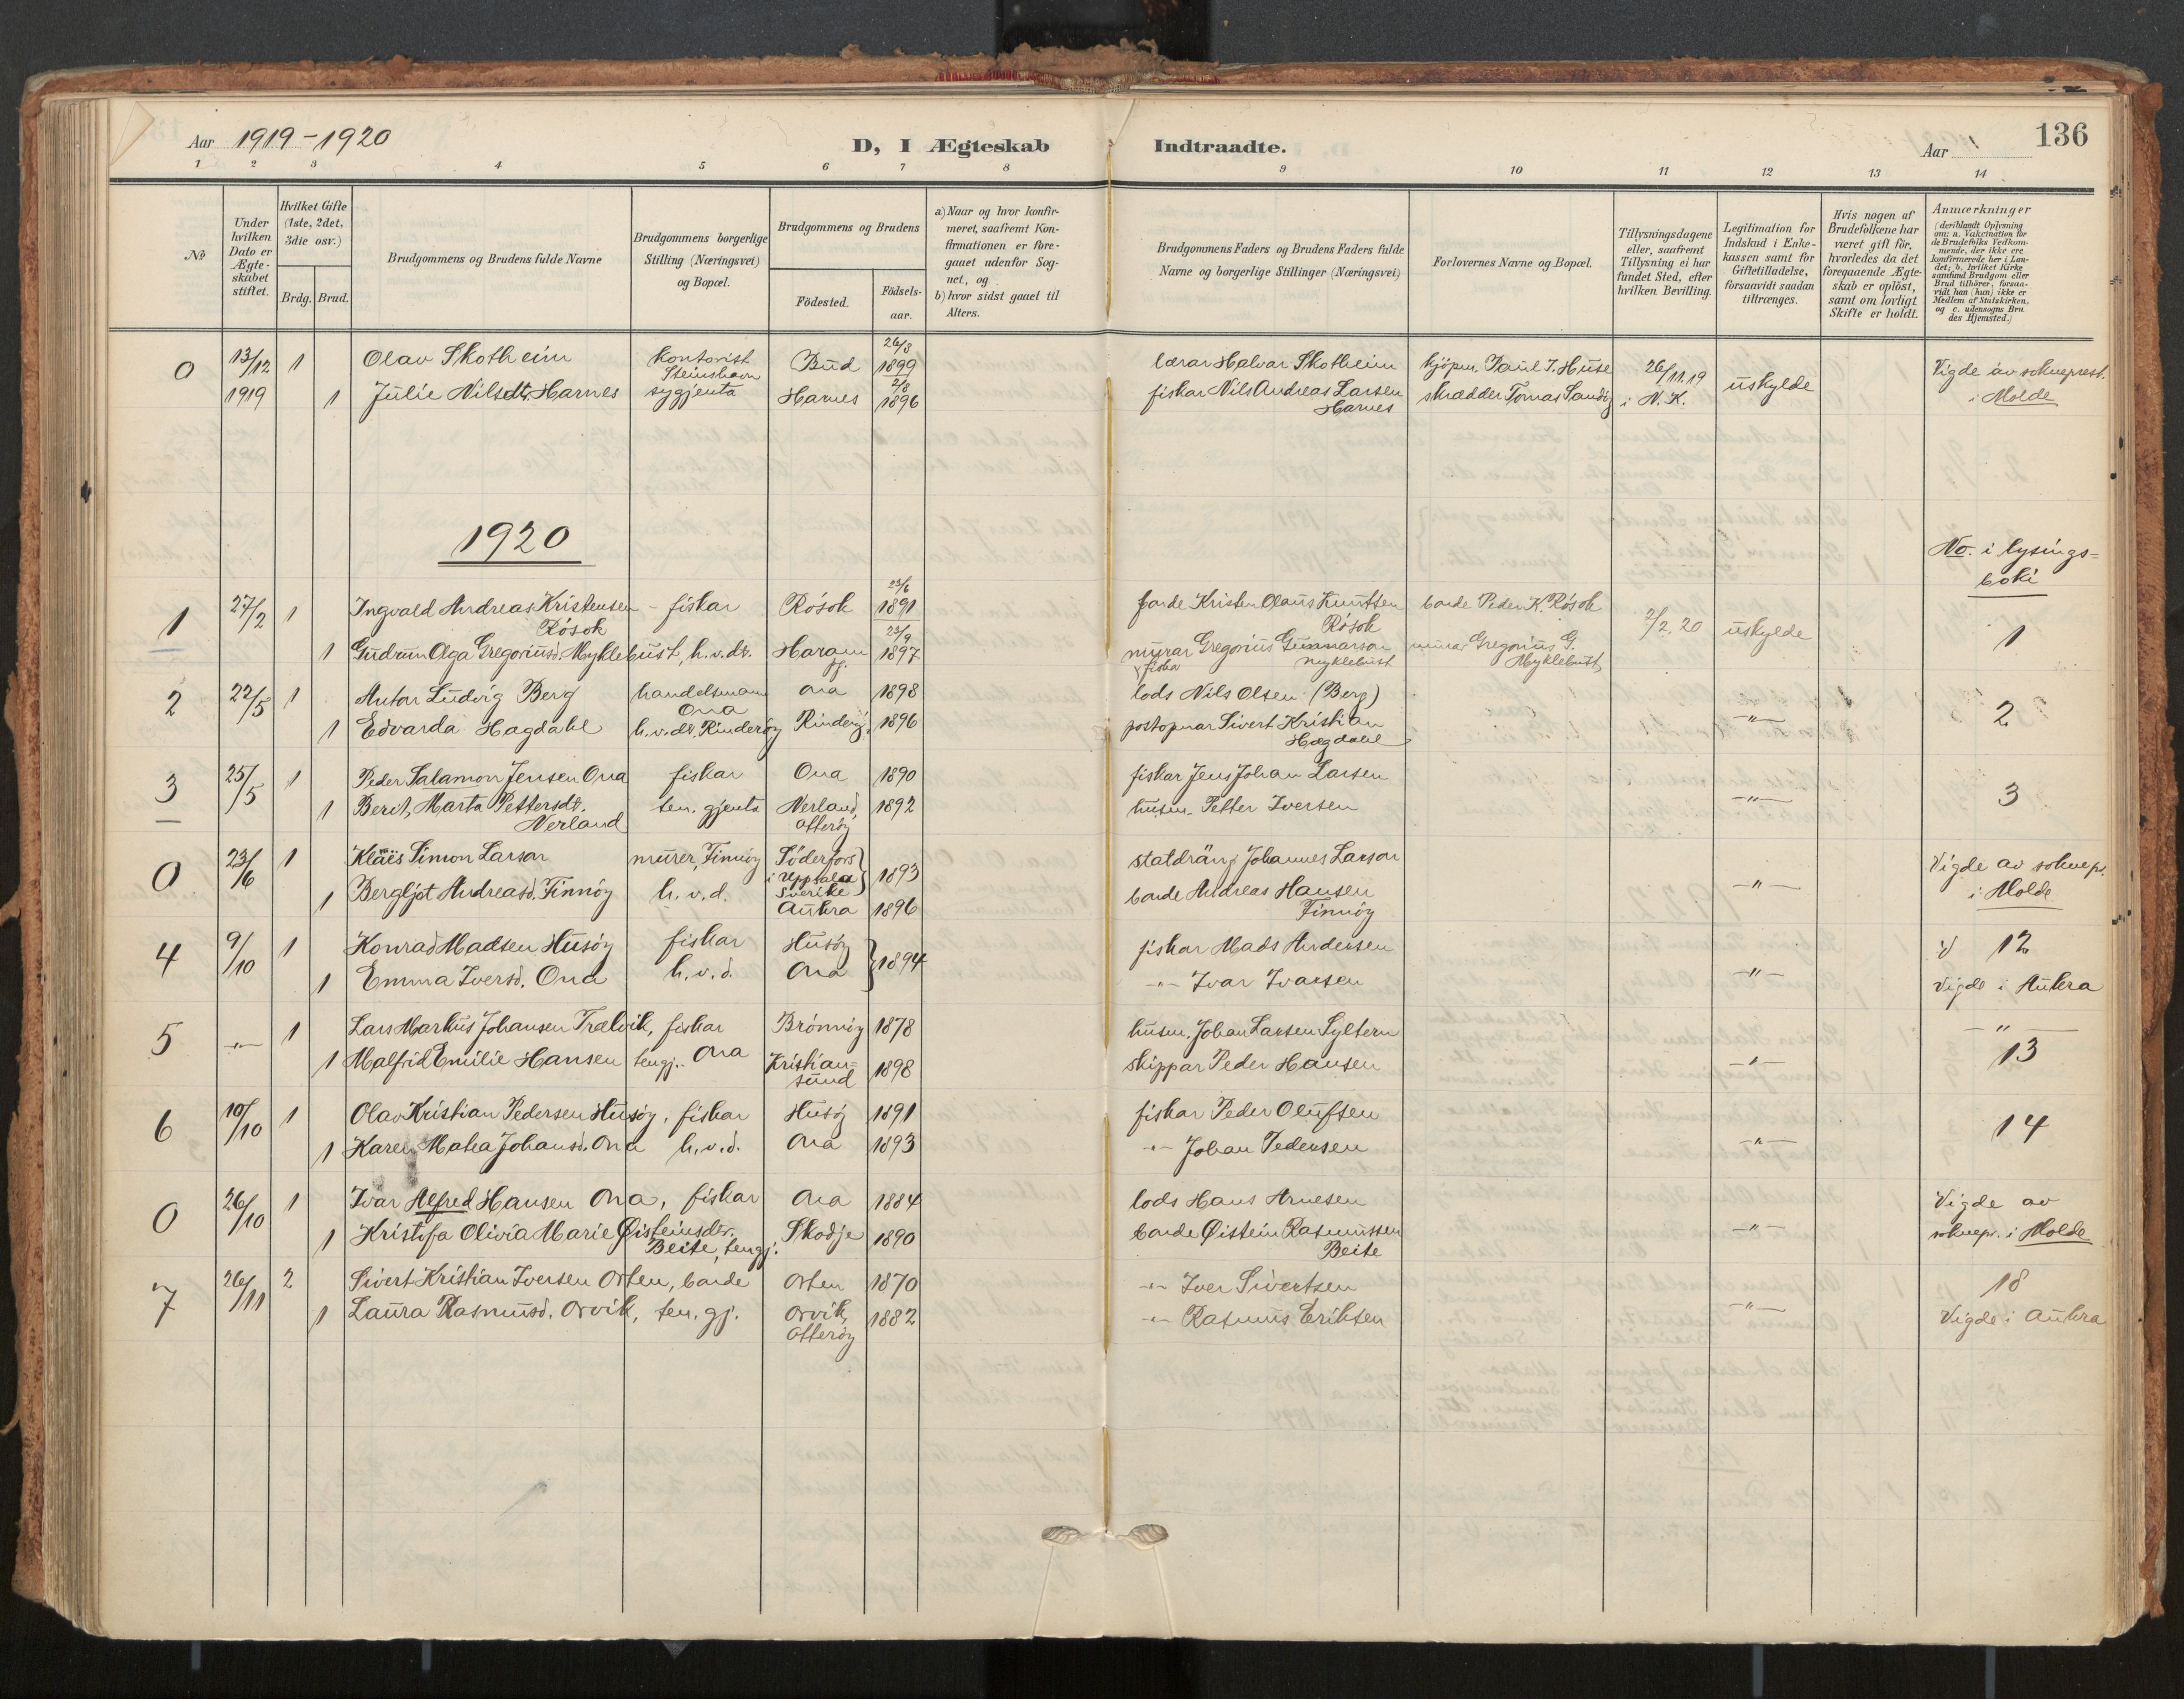 Aar 1919-1920
D, I Ægteskab Indtraadte.
Aar
136
1 2 3 4 5 6 7 8 9 10 11 12 13 14
No
Under hvilken Dato er Ægteskabet stiftet.
Hvilket Gifte (1ste, 2det, 3die osv.)
Brdg. Brud.
Brudgommens og Brudens fulde Navne
Brudgommens borgerlige Stilling (Næringsvei) og Bopæl.
Brudgommens og Brudens
Födested.
Födsels-aar.
a) Naar og hvor konfirmeret, saafremt Konfirmationen er foregaaet udenfor Sognet, og
b) hvor sidst gaaet til Alters.
Brudgommens Faders og Brudens Faders fulde Navne og borgerlige Stillinger (Næringsvei)
Forlovernes Navne og Bopæl.
Tillysningsdagene eller, saafremt Tillysning ei har fundet Sted, efter hvilken Bevilling.
Legitimation for Indskud i Enkekassen samt for Giftetilladelse, forsaavidt saadan tiltrænges.
Hvis nogen af Brudefolkene har været gift för, hvorledes da det foregaaende Ægteskab er oplöst, samt om lovligt Skifte er holdt.
Anmærkninger (deriblandt Oplysning om: a. Vakcination for de Brudefolks Vedkommende, der ikke ere konfirmerede her i Landet; b. hvilket Kirkesamfund Brudgom eller Brud tilhörer, forsaavidt han (hun) ikke er Medlem af Statskirken, og c. udensogns Brudes Hjemsted.)
0 13/12 1 Olav Skotheim kontorist Steinshavn Bud 26/3 1899 lærar Halvar Skotheim kjöpm. Paul J. Huse 26/11.19 uskylde Vigde av sokneprest.
1919 1 Julie Nilsdt. Harnes sygjenta Harnes 2/8 1896 fiskar Nils Andreas Larsen Harnes skrædder Tomas Sandøy i N. K. i Molde
1920
No. i lysings-
boki
1 27/2 1 Ingvald Andreas Kristensen Rösok - fiskar Rösok 23/6 1891 barde Kristen Olaus Knutsen Rösok barde Peder K. Rösok 2/2.20 uskylde 1
1 Gudrun Olga Gregoriusd. Myklebust, h.v.dt. Haram 23/9 1897 murar Gregorius Gunnarson Myklebust murar Gregorius G. Myklebust
2 22/5 1 Anton Ludvig Berg handelsmann Ona Ona 1898 lods Nils Olsen (Berg) -"- 2
1 Edvarda Hagdahl h.v.dt. Rinderöy Rinderöy 1896 postopnar Sivert Kristian Hagdahl
3 25/5 1 Peder Salamon Jensen Ona fiskar Ona 1890 fiskar Jens Johan Larsen -"- 3
1 Berit Marta Pettersdt. Nerland ten. gjenta Nerland, Otteröy 1892 husm. Petter Iversen
0 23/6 1 Klaës Simon Larson murer, Finnöy Söderfors i Uppsala Sverike 1893 statdräng Johannes Larson -"- Vigde av soknepr. i Molde
1 Bergljot Andreasd. Finnöy h.v.d. Aukra 1896 barde Andreas Hansen Finnöy
4 9/10 1 Konrad Madsen Husöy fiskar Husöy 1894 fiskar Mads Andersen -"- 12
1 Emma Iversd. Ona h.v.d. Ona -"- Ivar Ivarsen Vigde i Aukra
5 -"- 1 Lars Markus Johansen Trælvik, fiskar Ona Brönnöy 1878 husm. Johan Larsen Syltern -"- -"-
1 Malfrid Emilie Hansen tengj. Kristian-sund 1898 skippar Peder Hansen 13
6 10/10 1 Olav Kristian Pedersen Husöy, fiskar Husöy 1891 fiskar Peder Olufsen -"- 14
1 Karen Matea Johansd. Ona h.v.d. Ona 1893 -"- Johan Pedersen
0 26/10 1 Ivar Alfred Hansen Ona, fiskar Ona 1884 lods Hans Arnesen -"- Vigde av
1 Kristofa Olivia Marie Øisteinsdtr. Beite, tengj. Skodje 1890 barde Øistein Rasmussen Beite soknepr. i Molde
7 26/11 2 Sivert Kristian Iversen Orten, barde Orten 1870 -"- Iver Sivertsen -"- 18
1 Laura Rasmusd. Orvik, ten. gj. Orvik, Otteröy 1882 -"- Rasmus Eriksen Vigde i Aukra